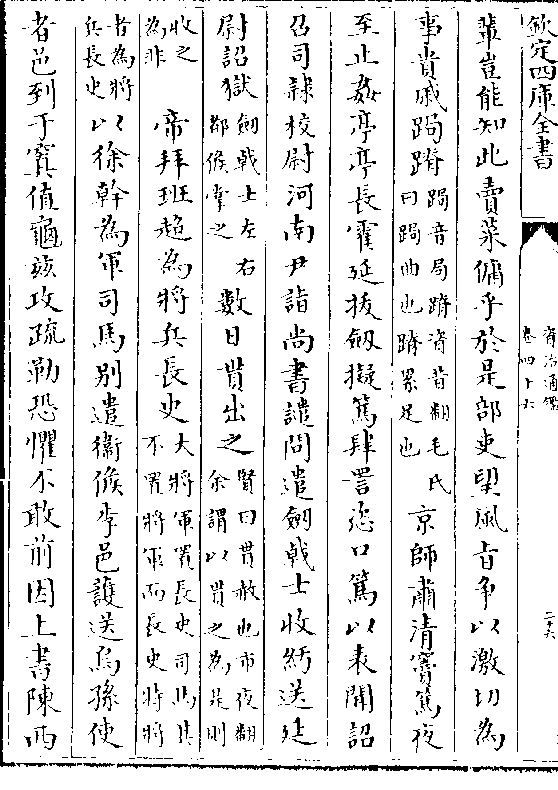 欽定四庫全書
資治通鑑
卷四十六
二十六
輩豈能知此賣菜傭乎於是部吏望風旨争以激切為
事貴戚跼蹐跼音局蹐資昔翻毛氏曰跼曲也蹐累足也京師肅清竇篤夜
至止姦亭亭長霍延拔劒擬篤肆詈恣口篤以表聞詔
召司隸校尉河南尹詣尚書譴問遣劒戟士收紆送廷
尉詔獄劒戟士左右都候掌之數日貰出之賢曰貰赦也市夜翻余謂以貰之為是則
收之為非帝拜班超為將兵長史大將軍置長史司馬其不置將軍而長史特將
者為將兵長史以徐幹為軍司馬别遣衛候李邑護送烏孫使
者邑到于窴值龜兹攻疏勒恐懼不敢前因上書陳西